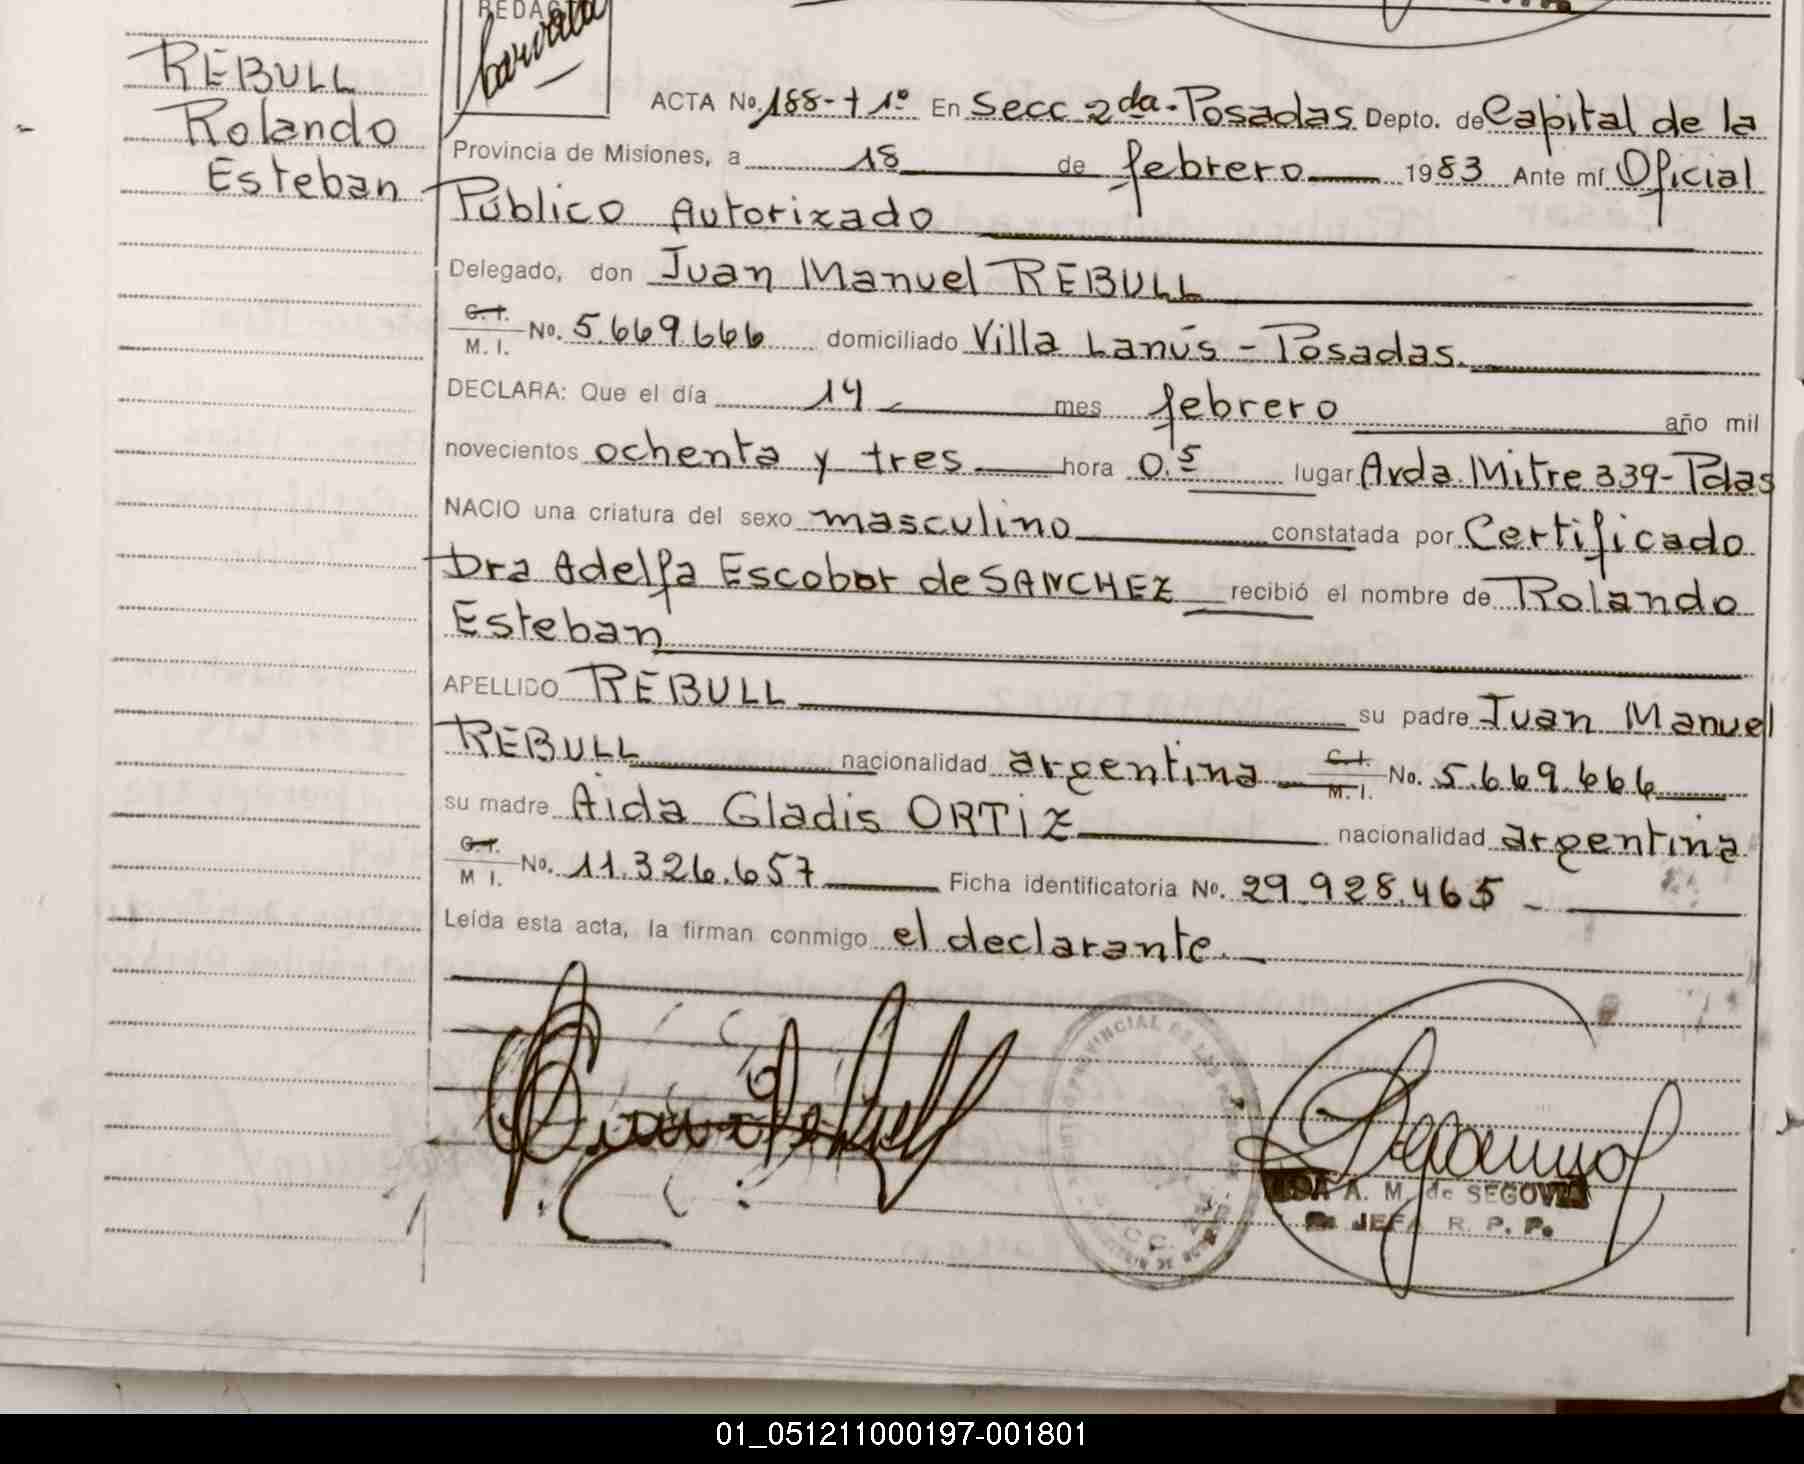 REDAC
REBULL
Rolando
Esteban
ACTA No. 188-t 1º En Secc 2da. Posadas Depto. de Capital de la
Provincia de Misiones, a 18 de febrero 1983 Ante mí Oficial
Público Autorizado
Delegado, don Juan Manuel REBULL
C.I.
M. I. No. 5.669.666 domiciliado Villa Lanús - Posadas.
DECLARA: Que el día 14 mes febrero año mil
novecientos ochenta y tres hora 0.5 lugar Avda. Mitre 339- Pdas
NACIO una criatura del sexo masculino constatada por Certificado
Dra Adelfa Escobar de SANCHEZ recibió el nombre de Rolando
Esteban
APELLIDO REBULL su padre Juan Manuel
REBULL nacionalidad argentina C.I.
M. I. No. 5.669.666
su madre Aida Gladis ORTIZ nacionalidad argentina
C.I.
M I. No. 11.326.657 Ficha identificatoria No. 29.928.465
Leída esta acta, la firman conmigo el declarante.
PROVINCIAL DE LAS
A. M. de SEGOVIA
JEFA R. P. P.
01_051211000197-001801